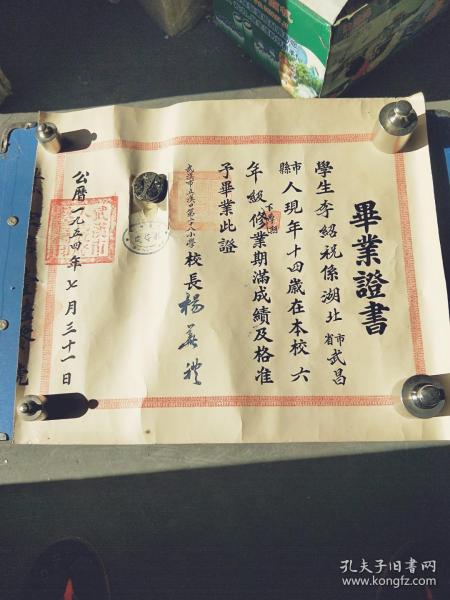 畢業證書
學生李紹祝係湖北省市武昌
縣市人現年十四歲在本校六
年級下學期修業期滿成績及格准
予畢業此證
武漢市立漢口第二十八小學校長楊
公曆一九五四年七月三十一日
孔夫子旧书网
www.kongfz.com